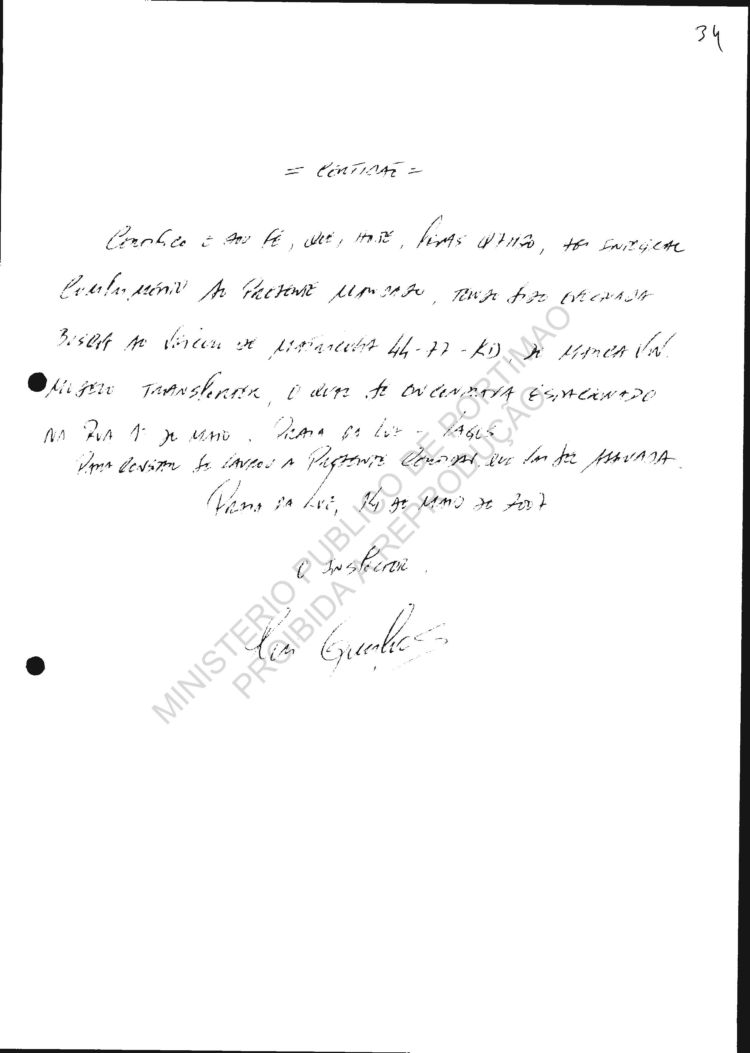 34
= CERTIDÃO =
CERTIFICO E DOU FÉ, QUE, HOJE, PELAS 07H30, DEI INTEGRAL
CUMPRIMENTO AO PRESENTE MANDADO, TENDO SIDO EFECTUADA
BUSCA AO VEICULO DE MATRICULA 44-77-KD, DE MARCA VW.
MODELO TRANSPORTER, O QUAL SE ENCONTRAVA ESTACIONADO
NA RUA 1º DE MAIO. PRAIA DA LUZ - LAGOS
PARA CONSTAR SE LAVROU A PRESENTE CERTIDÃO QUE VAI SER ASSINADA.
PRAIA DA LUZ, 14 DE MAIO DE 2007
O INSPECTOR.
MINISTERIO PUBLICO DE PORTIMAO
PROIBIDA A REPRODUÇÃO